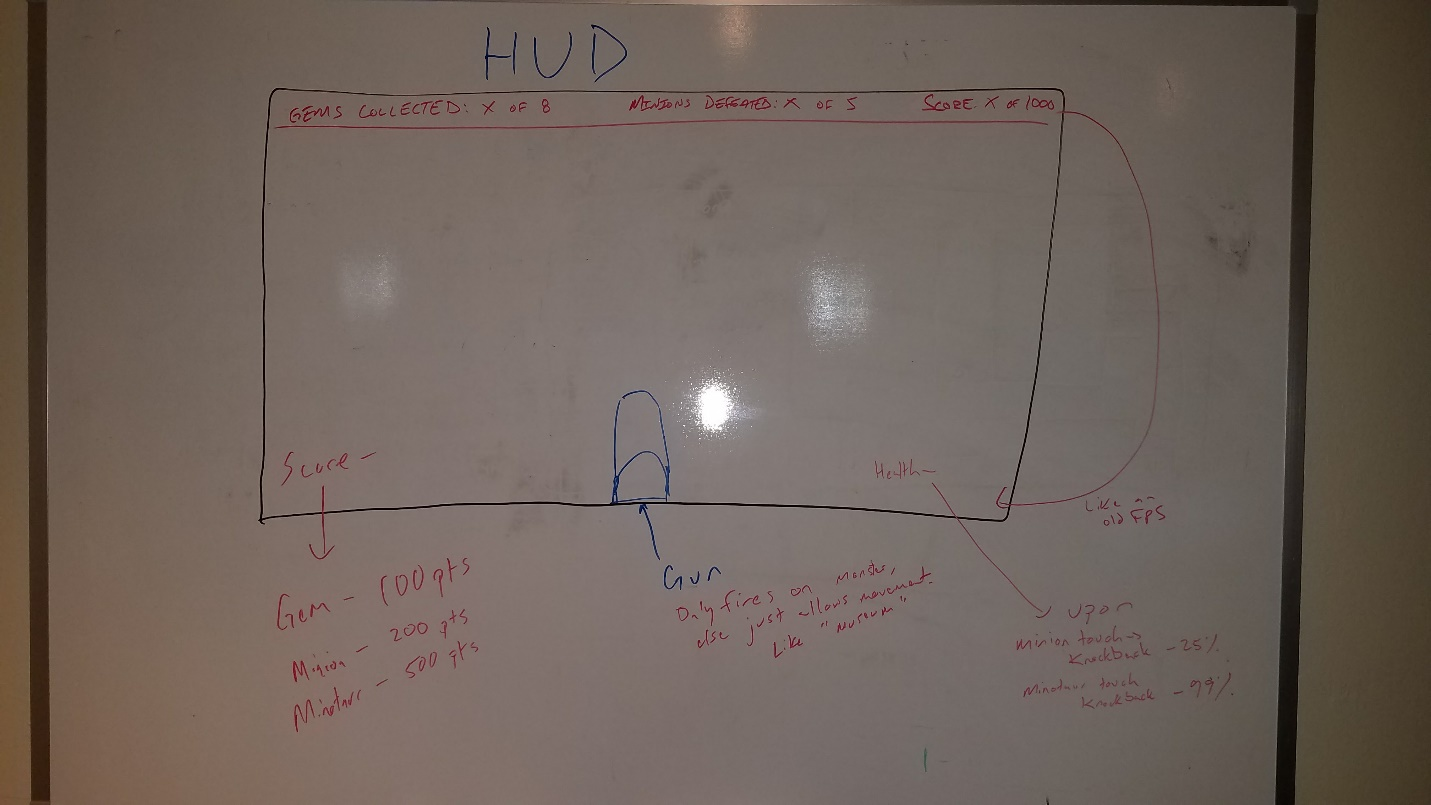 HUD
GEMS COLLECTED: X OF 8
MINIONS DEFEATED: X OF 5
SCORE: X OF 1000
Score -
Health -
Like
old FPS
Gem - 100 pts
Minion - 200 pts
Minotaur - 500 pts
Gun
Only fires on monster,
else just allows movement.
Like "museum"
Upon
Minion touch →
Knockback - 25%
Minotaur touch
Knockback - 99%